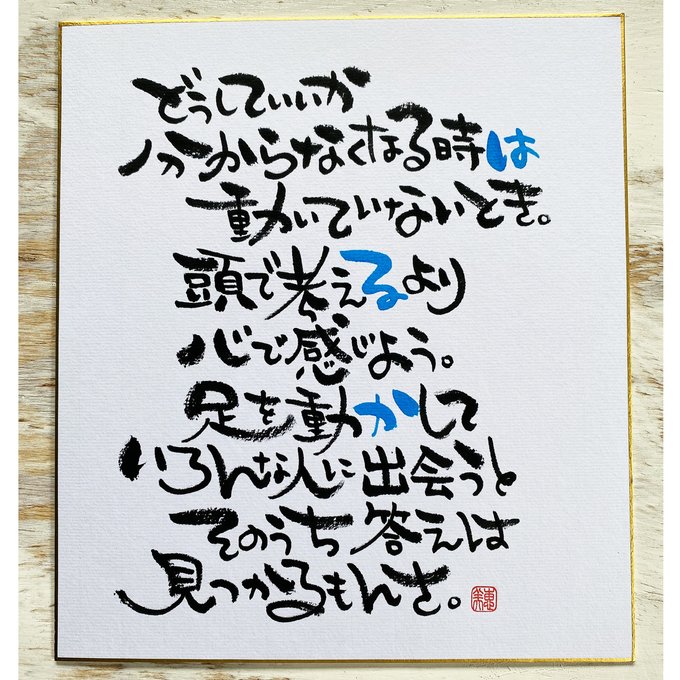 どうしていいか
分からなくなる時は
動いていないとき。
頭で考えるより
心で感じよう。
足を動かして
いろんな人に出会うと
そのうち答えは
見つかるもんさ。
美恵